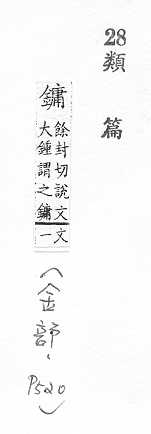 28
類篇
鏞
餘封切說文
大鍾謂之鏞
文一
(金部、P520)